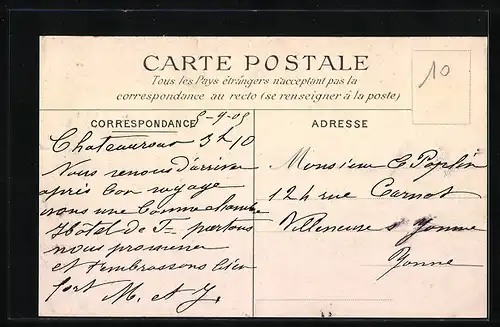 CARTE POSTALE
Tous les Pays étrangers n'acceptant pas la
correspondance au recto (se renseigner à la poste)
10
CORRESPONDANCE
5-9-05
ADRESSE
Chateauroux 3h10
Nous venons d'arriver
après bon voyage
avons une bonne chambre
Hôtel de partons
nous promener
et t'embrassons bien
fort M. et J.
Monsieur
124 rue Carnot
Villeneuve s Yonne
Yonne